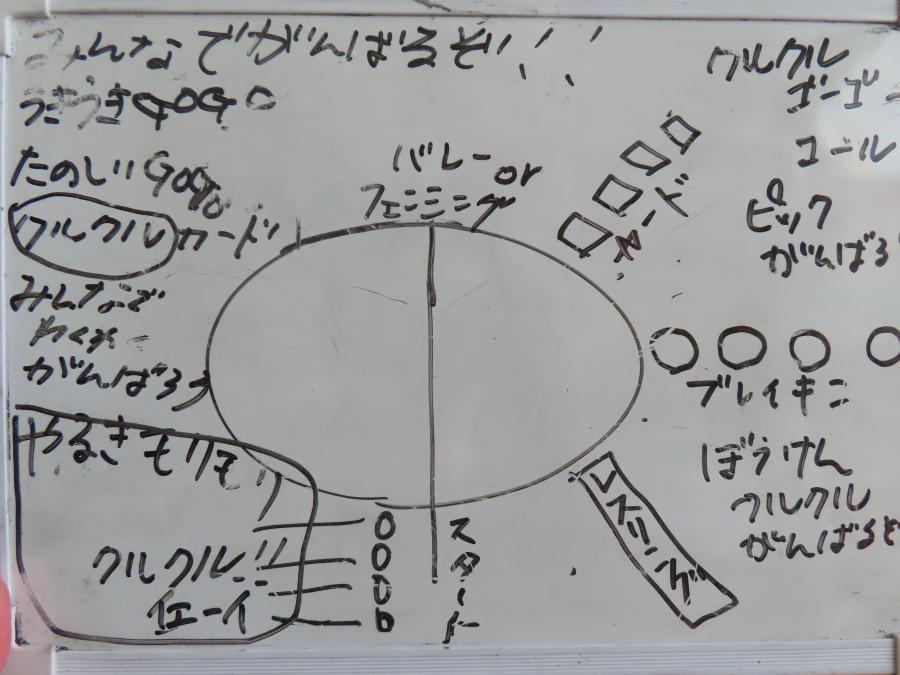 みんなでがんばるぞ!!
うきうきGOGO
たのしいGOGO
クルクルカード
みんなで
わくわく
がんばろう
やるきモリモリ
クルクル!!
イェーイ
バレー
or
フェンシング
スタート
スケボード
クルクル
ゴーゴー
コール
ピック
がんばろ
ブレイキン
ぼうけん
クルクル
がんばるぞ
レスリング